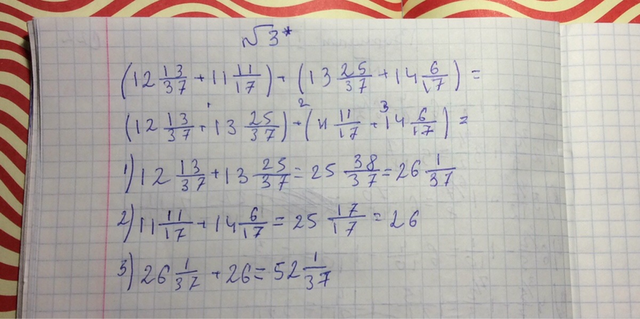 √3*
(12 13/37 + 11 11/17) + (13 25/37 + 14 6/17) =
(12 13/37 + 13 25/37) + (11 11/17 + 14 6/17) =
1) 12 13/37 + 13 25/37 = 25 38/37 = 26 1/37
2) 11 11/17 + 14 6/17 = 25 17/17 = 26
3) 26 1/37 + 26 = 52 1/37